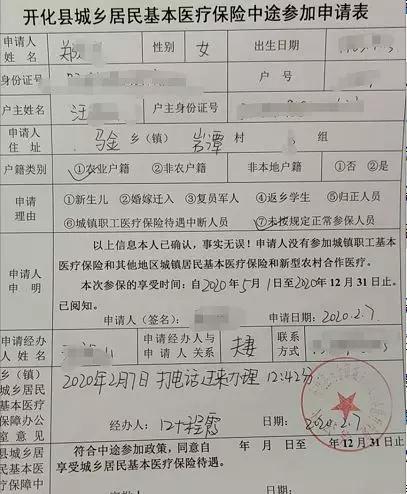 开化县城乡居民基本医疗保险中途参加申请表
申请人姓名 郑 性别 女 出生日期
身份证号 户号
户主姓名 汪 户主身份证号
申请人住址 马金 乡(镇) 岩潭 村 组
户籍类别 ①农业户籍 ②非农户籍 非本地户籍 ①否 ②是
申请理由 ①新生儿 ②婚嫁迁入 ③复员军人 ④返乡学生 ⑤归正人员
⑥城镇职工医疗保险待遇中断人员 ⑦未按规定正常参保人员
申请人申明 以上信息本人已确认，事实无误！申请人没有参加城镇职工基本
医疗保险和其他地区城镇居民基本医疗保险和新型农村合作医疗。
本次参保的享受时间：自2020年5月1日至2020年12月31日止。
已阅知。
申请人（签名）： 申请时间：2020.2.7
申请经办人姓名 申请经办人与申请人关系 夫妻 联系方式
乡（镇）城乡居民基本医疗保障办公室意见 2020年2月7日 打电话过来办理 12:42分
经办人： 程雷 日期：2020.2.7
县城乡居民基本医疗保障中 符合中途参加政策，同意自 年 月 日至 年 12 月 31 日止
享受城乡居民基本医疗保险待遇。
日期： 年 月 日